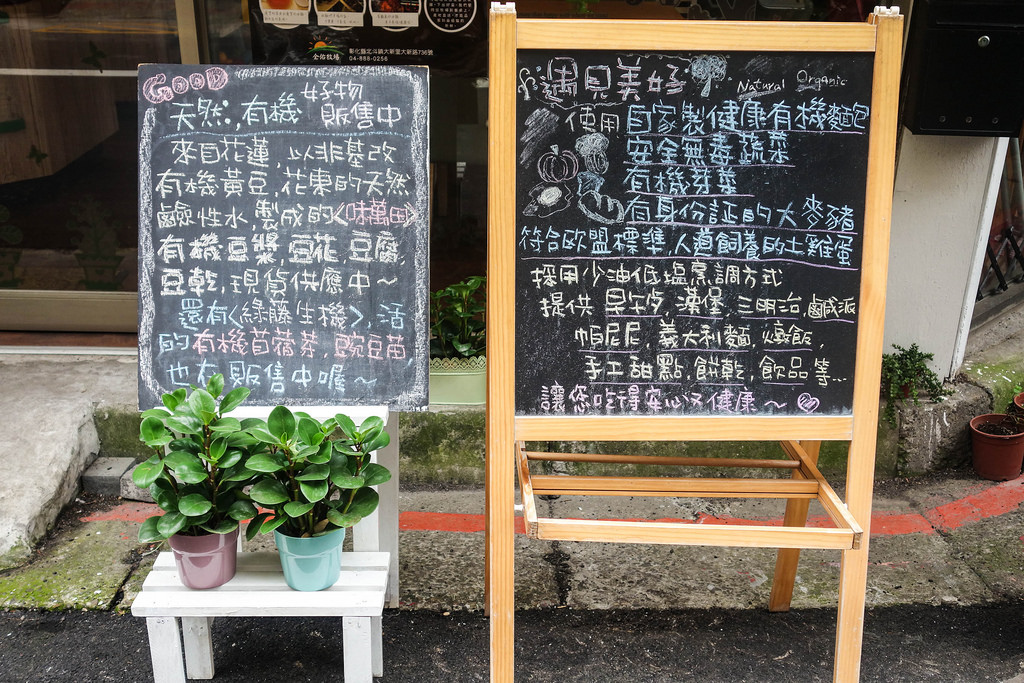 金佑牧場
彰化縣北斗鎮大新里大新路736號
04-888-0256
GOOD
好物
天然,有機 販售中
來自花蓮,以非基改
有機黃豆,花東的天然
鹼性水,製成的<味萬田>
有機豆漿,豆花,豆腐,
豆乾,現貨供應中~
還有<綠藤生機>,活
的有機苜蓿芽,豌豆苗,
也在販售中喔~
遇見美好 Natural Organic
使用自家製健康有機麵包
安全無毒蔬菜
有機芽菜
有身份証的大麥豬
符合歐盟標準人道飼養的土雞蛋
採用少油低塩烹調方式
提供早午夕,漢堡,三明治,鹹派
帕尼尼,義大利麵,燉飯,
手工甜點,餅乾,飲品等...
讓您吃得安心又健康~